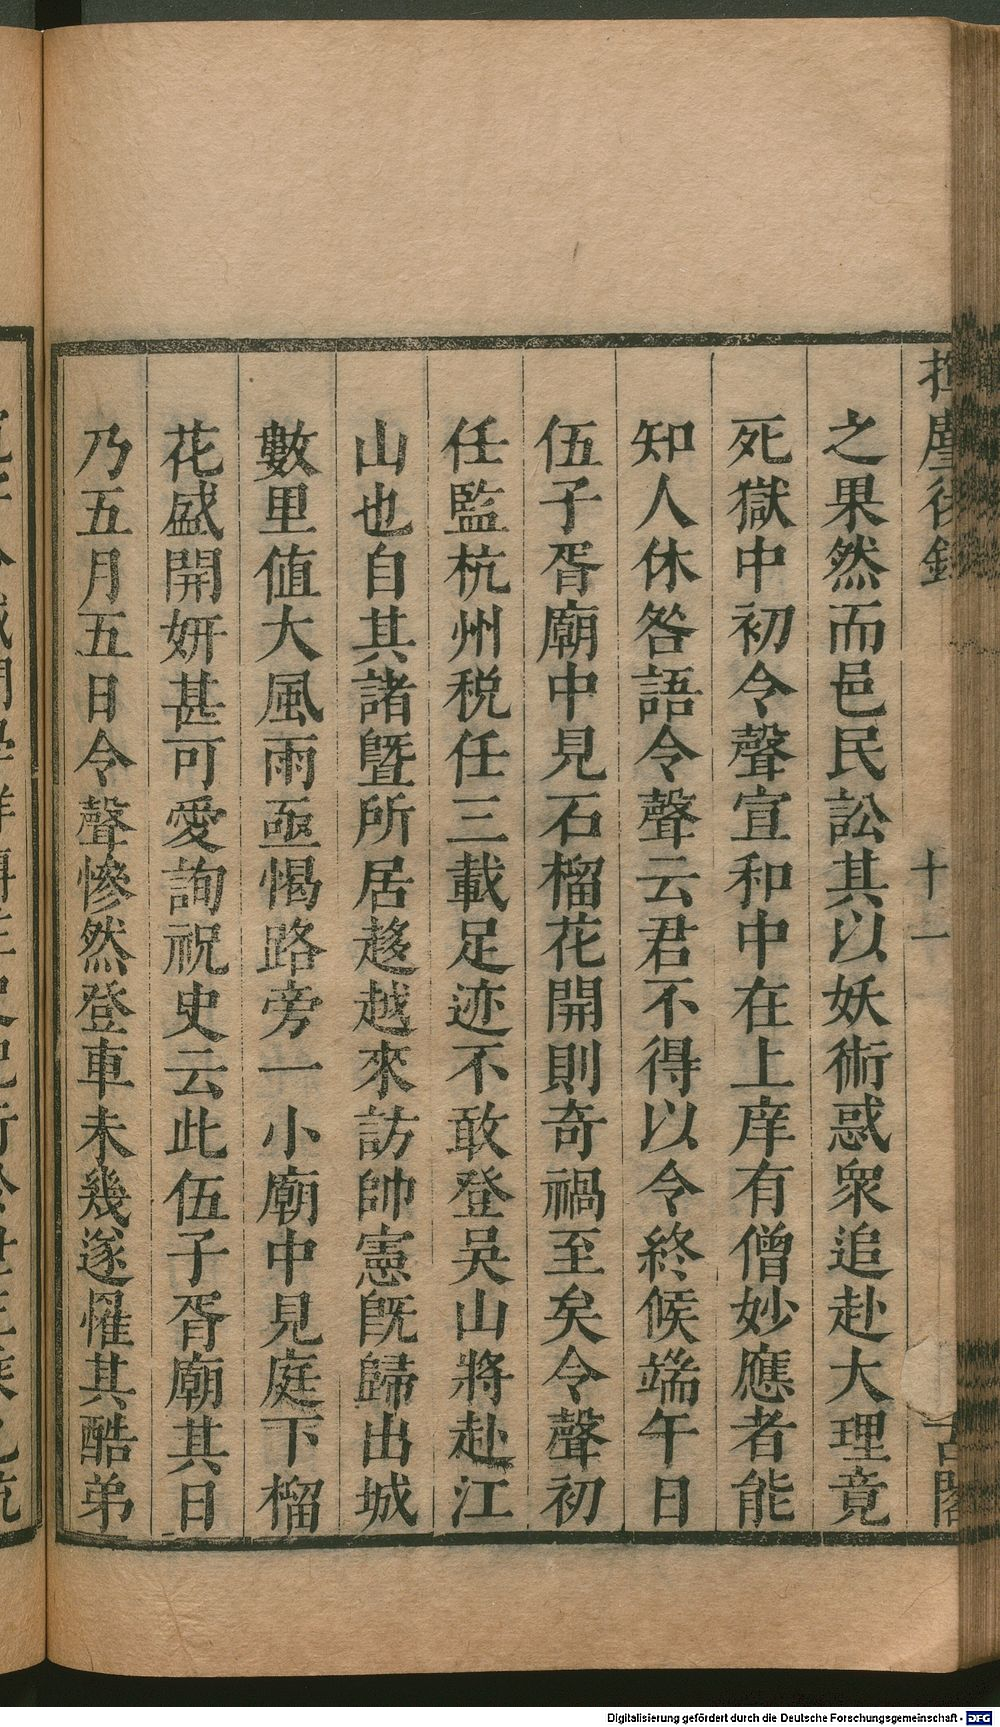 揮麈後錄
十一
古閣
之果然而邑民訟其以妖術惑衆追赴大理竟
死獄中初令聲宣和中在上庠有僧妙應者能
知人休咎語令聲云君不得以令終候端午日
伍子胥廟中見石榴花開則奇禍至矣令聲初
任監杭州税任三載足迹不敢登吳山將赴江
山也自其諸暨所居趍越來訪帥憲旣歸出城
數里值大風雨亟愒路旁一小廟中見庭下榴
花盛開妍甚可愛詢祝史云此伍子胥廟其日
乃五月五日令聲慘然登車未幾遂罹其酷弟
Digitalisierung gefördert durch die Deutsche Forschungsgemeinschaft - DFG